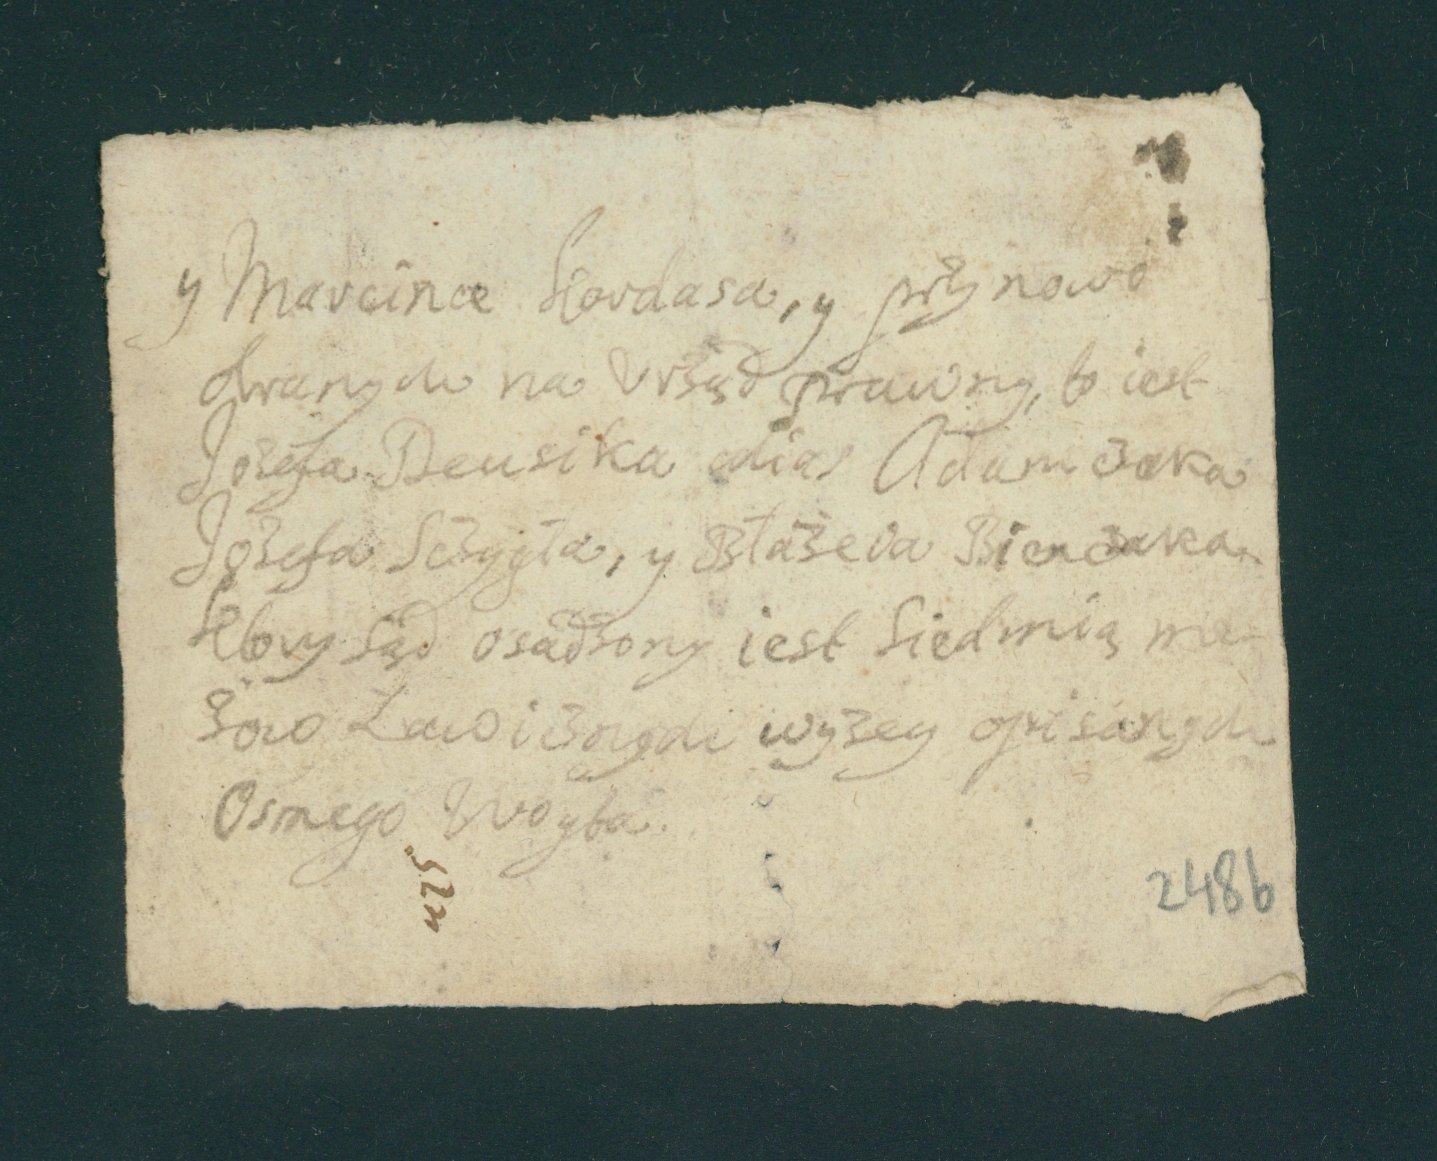 y Marcina Kordasa, y przy nowo
branych na Vrząd prawny, to iest
Jozefa Deusika alias Adamczaka
Jozefa Sczygła, y Błażeia Bienczaka
Ktory Sąd osadzony iest Siedmią mę-
zow Ławicznych wyżey opisanych
Osmego Woyta.
2486